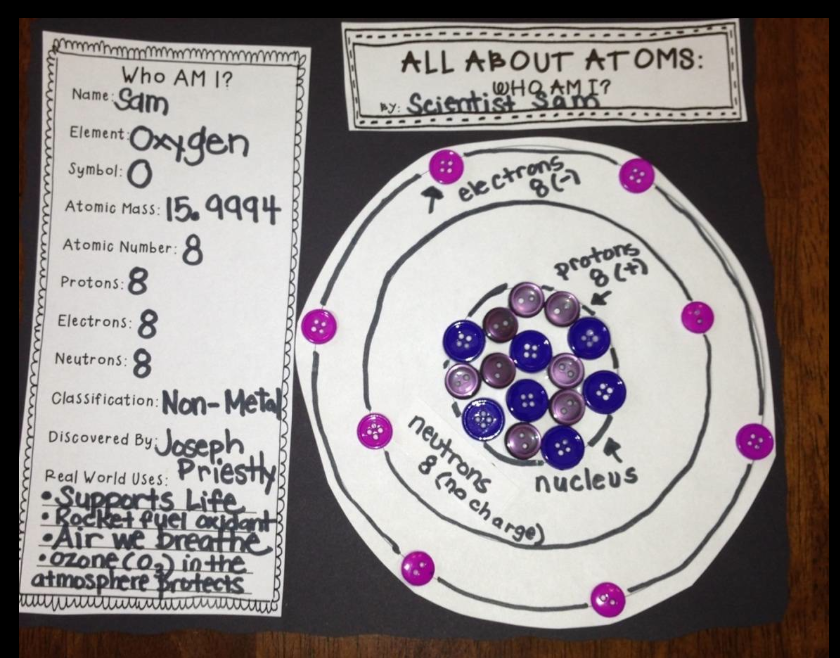 ALL ABOUT ATOMS:
WHO AM I?
By: Scientist Sam
Who AM I?
Name: Sam
Element: Oxygen
Symbol: O
Atomic Mass: 15.9994
Atomic Number: 8
Protons: 8
Electrons: 8
Neutrons: 8
Classification: Non-Metal
Discovered By: Joseph
Priestly
Real World Uses:
• Supports Life
• Rocket fuel oxidant
• Air we breathe
• Ozone (O₃) in the
atmosphere protects
electrons
8 (-)
protons
8 (+)
neutrons
8 (no charge)
nucleus